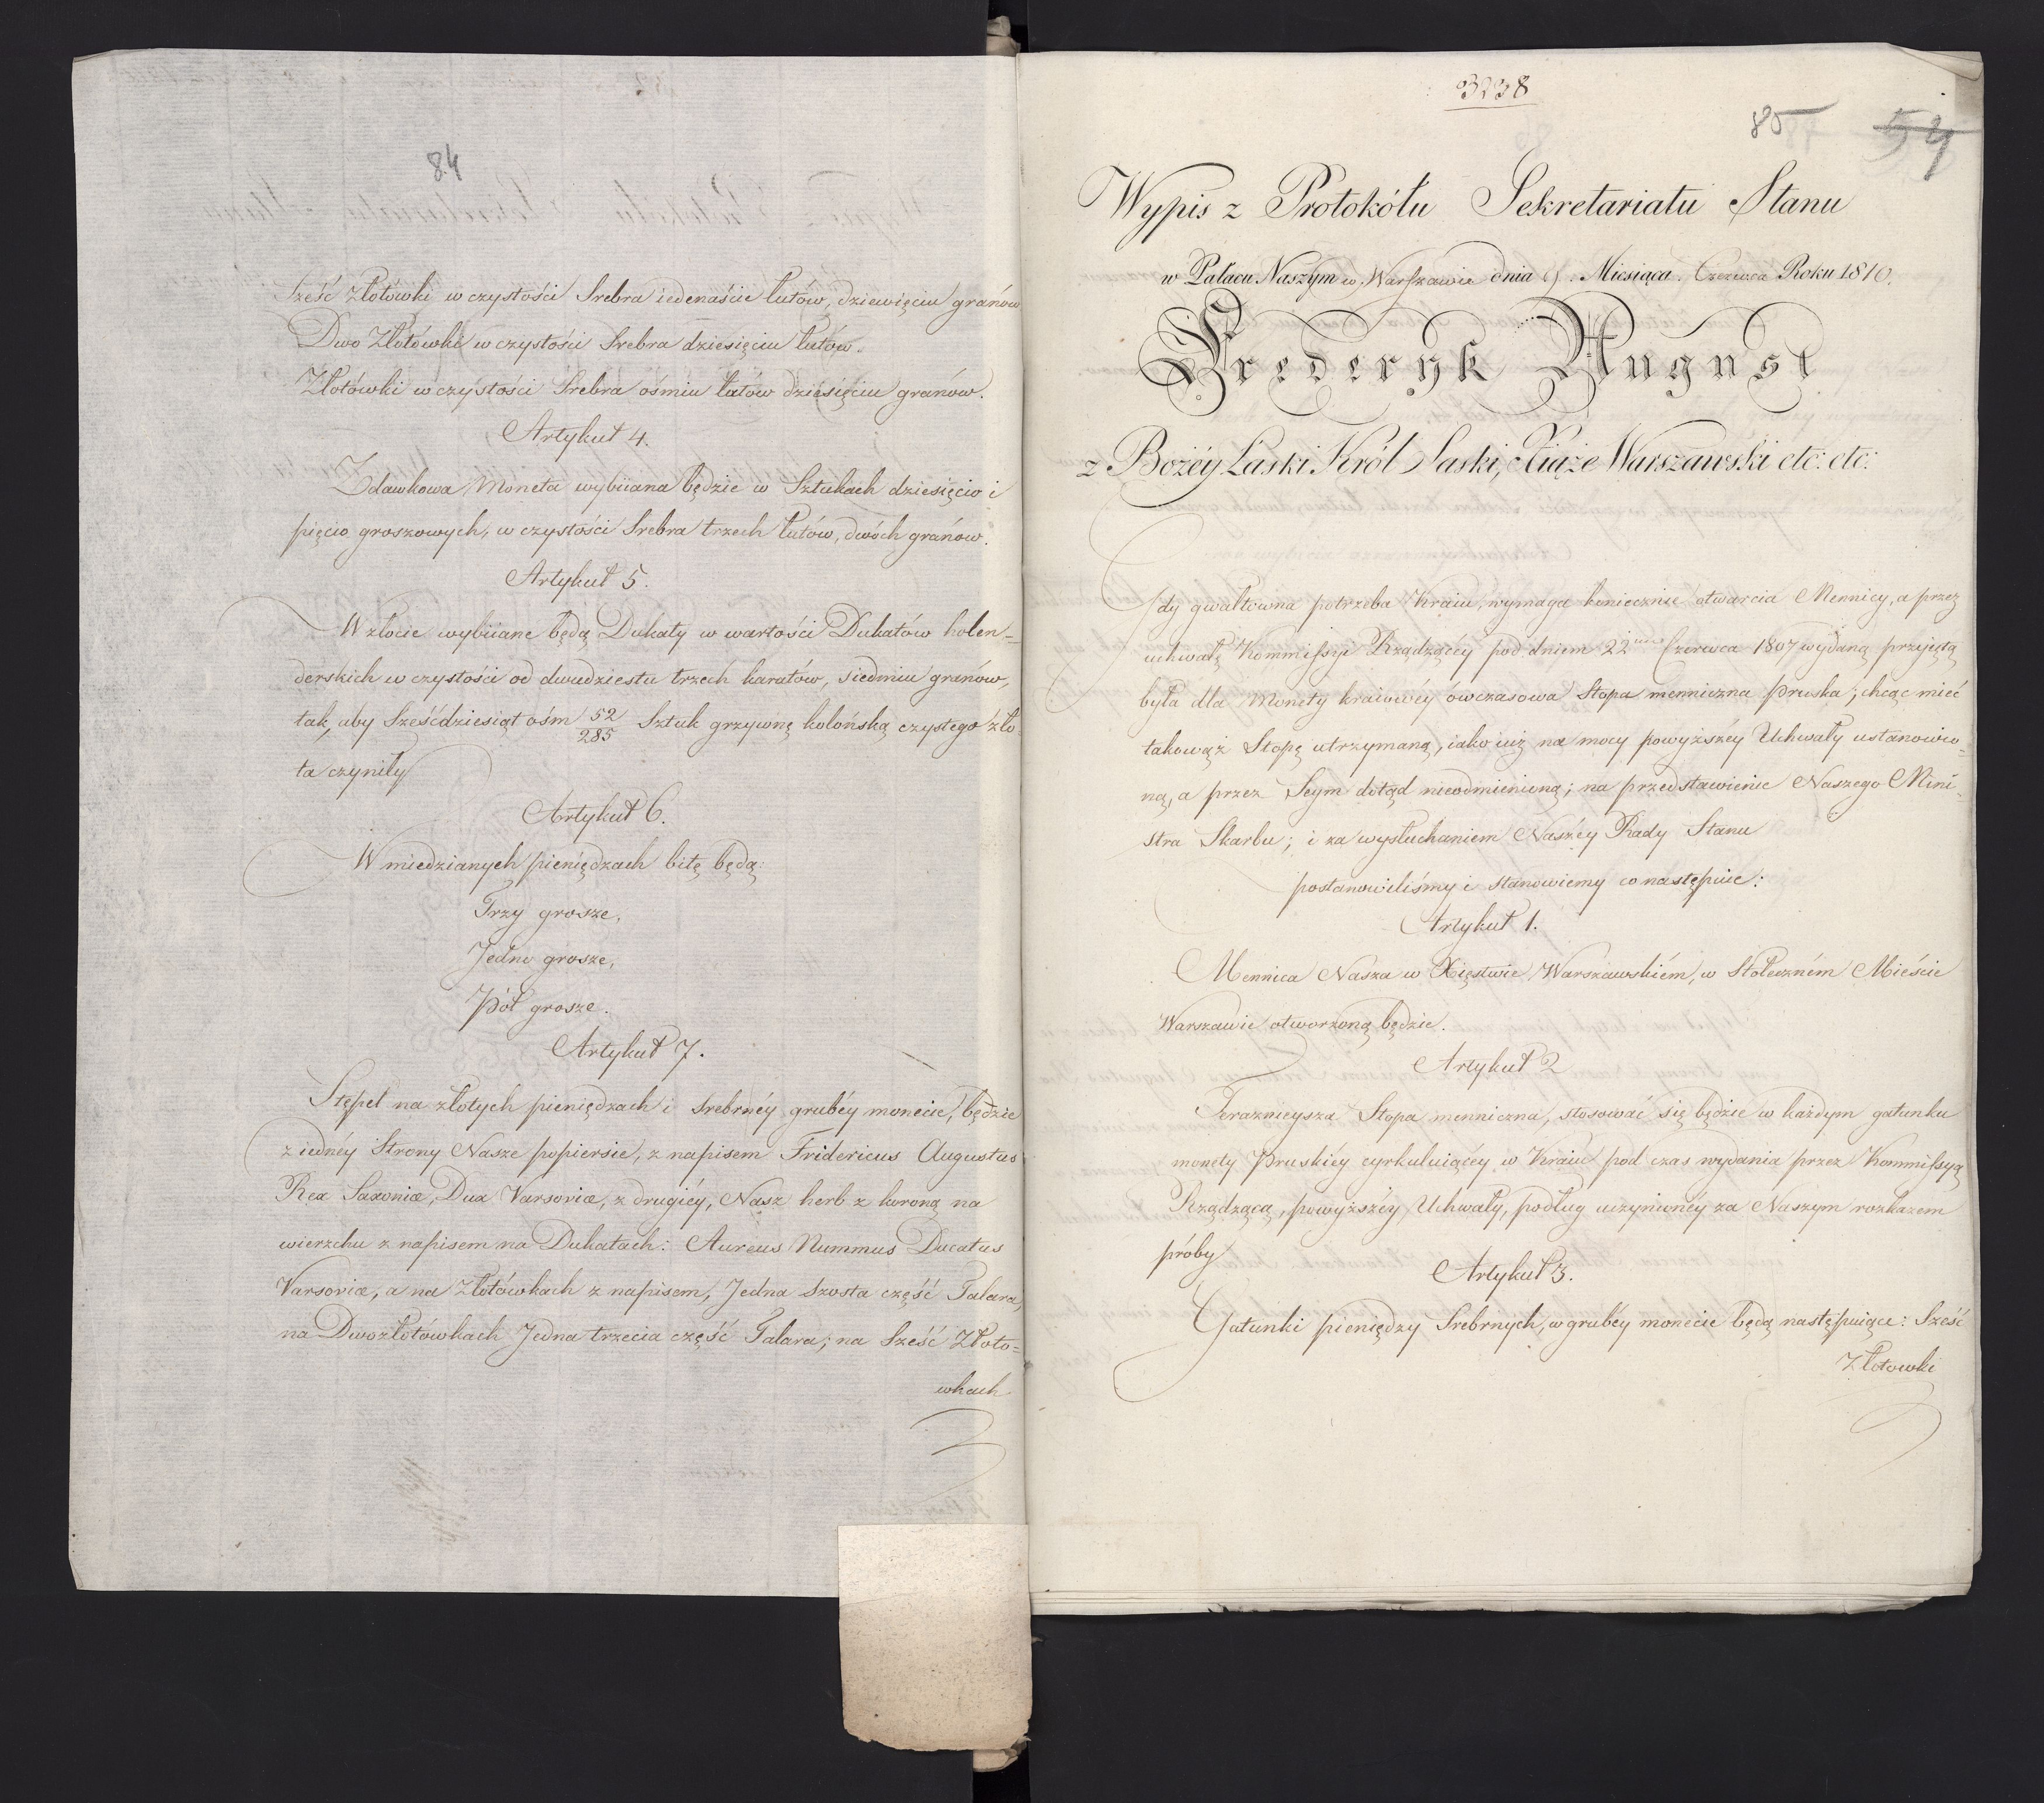 84
Sześć złotówki w czystości Srebra iedenaście łutów, dziewięciu granów
Dwo Złotówki w czystości Srebra dziesięciu łutów.
Złotówki w czystości Srebra ośmiu łutów dziesięciu granów.
Artykuł 4.
Zdawkowa Moneta wybiiana będzie w Sztukach dziesięcio i
pięcio groszowych, w czystości Srebra trzech łutów, dwóch granów.
Artykuł 5.
W złocie wybiiane będą Dukaty w wartości Dukatów holen=
derskich w czystości od dwudziestu trzech karatów, siedmiu granów,
tak, aby Sześćdziesiąt ośm 52/285 Sztuk grzywnę kolońską czystego zło=
ta czyniły
Artykuł 6.
W miedzianych pieniędzach bite będą:
Trzy grosze,
Jedno grosze,
Pół grosze.
Artykuł 7.
Stępel na złotych pieniędzach i srebrnéy grubéy monecie, będzie
z iednéy Strony Nasze popiersie, z napisem Fridericus Augustus
Rex Saxoniæ, Dux Varsoviæ, z drugiéy, Nasz herb z koroną na
wierzchu z napisem na Dukatach: Aureus Nummus Ducatus
Varsoviæ, a na złotówkach z napisem, Jedna szosta część Talara,
na Dwozłotówkach Jedna trzecia część Talara; na Sześć Złoto=
wkach
3238
85 54
Wypis z Protokółu Sekretariatu Stanu
w Pałacu Naszym w Warszawie dnia 9. Miesiąca Czerwca Roku 1810.
Frederyk August
z Bożéy Łaski Król Saski, Xiąże Warszawski etc: etc:
Gdy gwałtowna potrzeba Kraiu, wymaga koniecznie otwarcia Mennicy, a przez
uchwałę Kommissyi Rządzącéy pod dniem 22 Czerwca 1807 wydaną przyjętą
była dla Monety kraiowéy ówczasowa Stopa menniczna pruska; chcąc mieć
takowąż Stopę utrzymaną, iako iuż na mocy powyższéy Uchwały ustanowio=
ną, a przez Seym dotąd nieodmienioną; na przedstawienie Naszego Mini=
stra Skarbu; i za wysłuchaniem Naszéy Rady Stanu
postanowiliśmy i stanowiemy co następuie:
Artykuł 1.
Mennica Nasza w Xięstwie Warszawskiém, w Stołeczném Mieście
Warszawie otworzoną będzie.
Artykuł 2
Teraznieysza Stopa menniczna, stosować się będzie w każdym gatunku
monety Pruskiéy cyrkuluiącéy w Kraiu pod czas wydania przez Kommissyą
Rządzącą, powyższéy Uchwały, podług uczynionéy za Naszym rozkazem
próby
Artykuł 3.
Gatunki pieniędzy Srebrnych, w grubéy monecie będą następuiące: Sześć
Złotowki